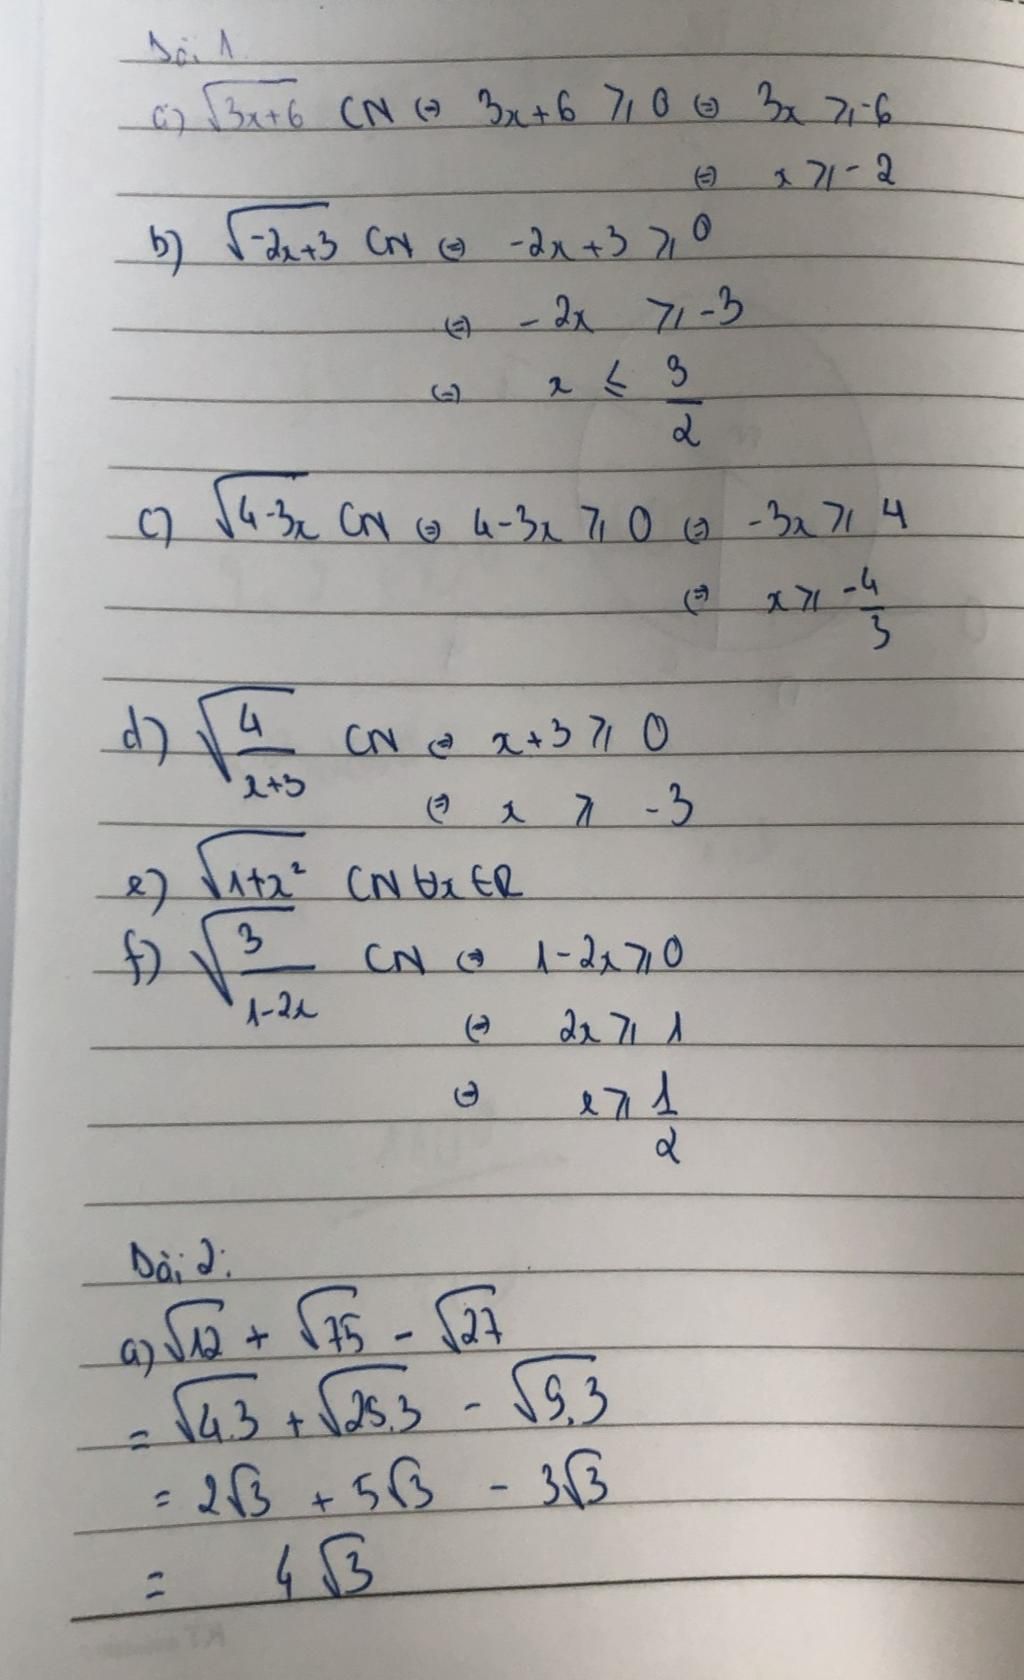 Bài 1
a) √3x+6 CN ⇔ 3x+6 ⩾ 0 ⇔ 3x ⩾ -6
⇔ x ⩾ -2
b) √-2x+3 CN ⇔ -2x+3 ⩾ 0
⇔ -2x ⩾ -3
⇔ x ⩽ 3/2
c) √4-3x CN ⇔ 4-3x ⩾ 0 ⇔ -3x ⩾ 4
⇔ x ⩾ -4/3
d) √4/x+3 CN ⇔ x+3 ⩾ 0
⇔ x ⩾ -3
e) √1+x² CN ∀x ∈ R
f) √3/1-2x CN ⇔ 1-2x ⩾ 0
⇔ 2x ⩾ 1
⇔ x ⩾ 1/2
Bài 2:
a) √12 + √75 - √27
= √4.3 + √25.3 - √9.3
= 2√3 + 5√3 - 3√3
= 4√3